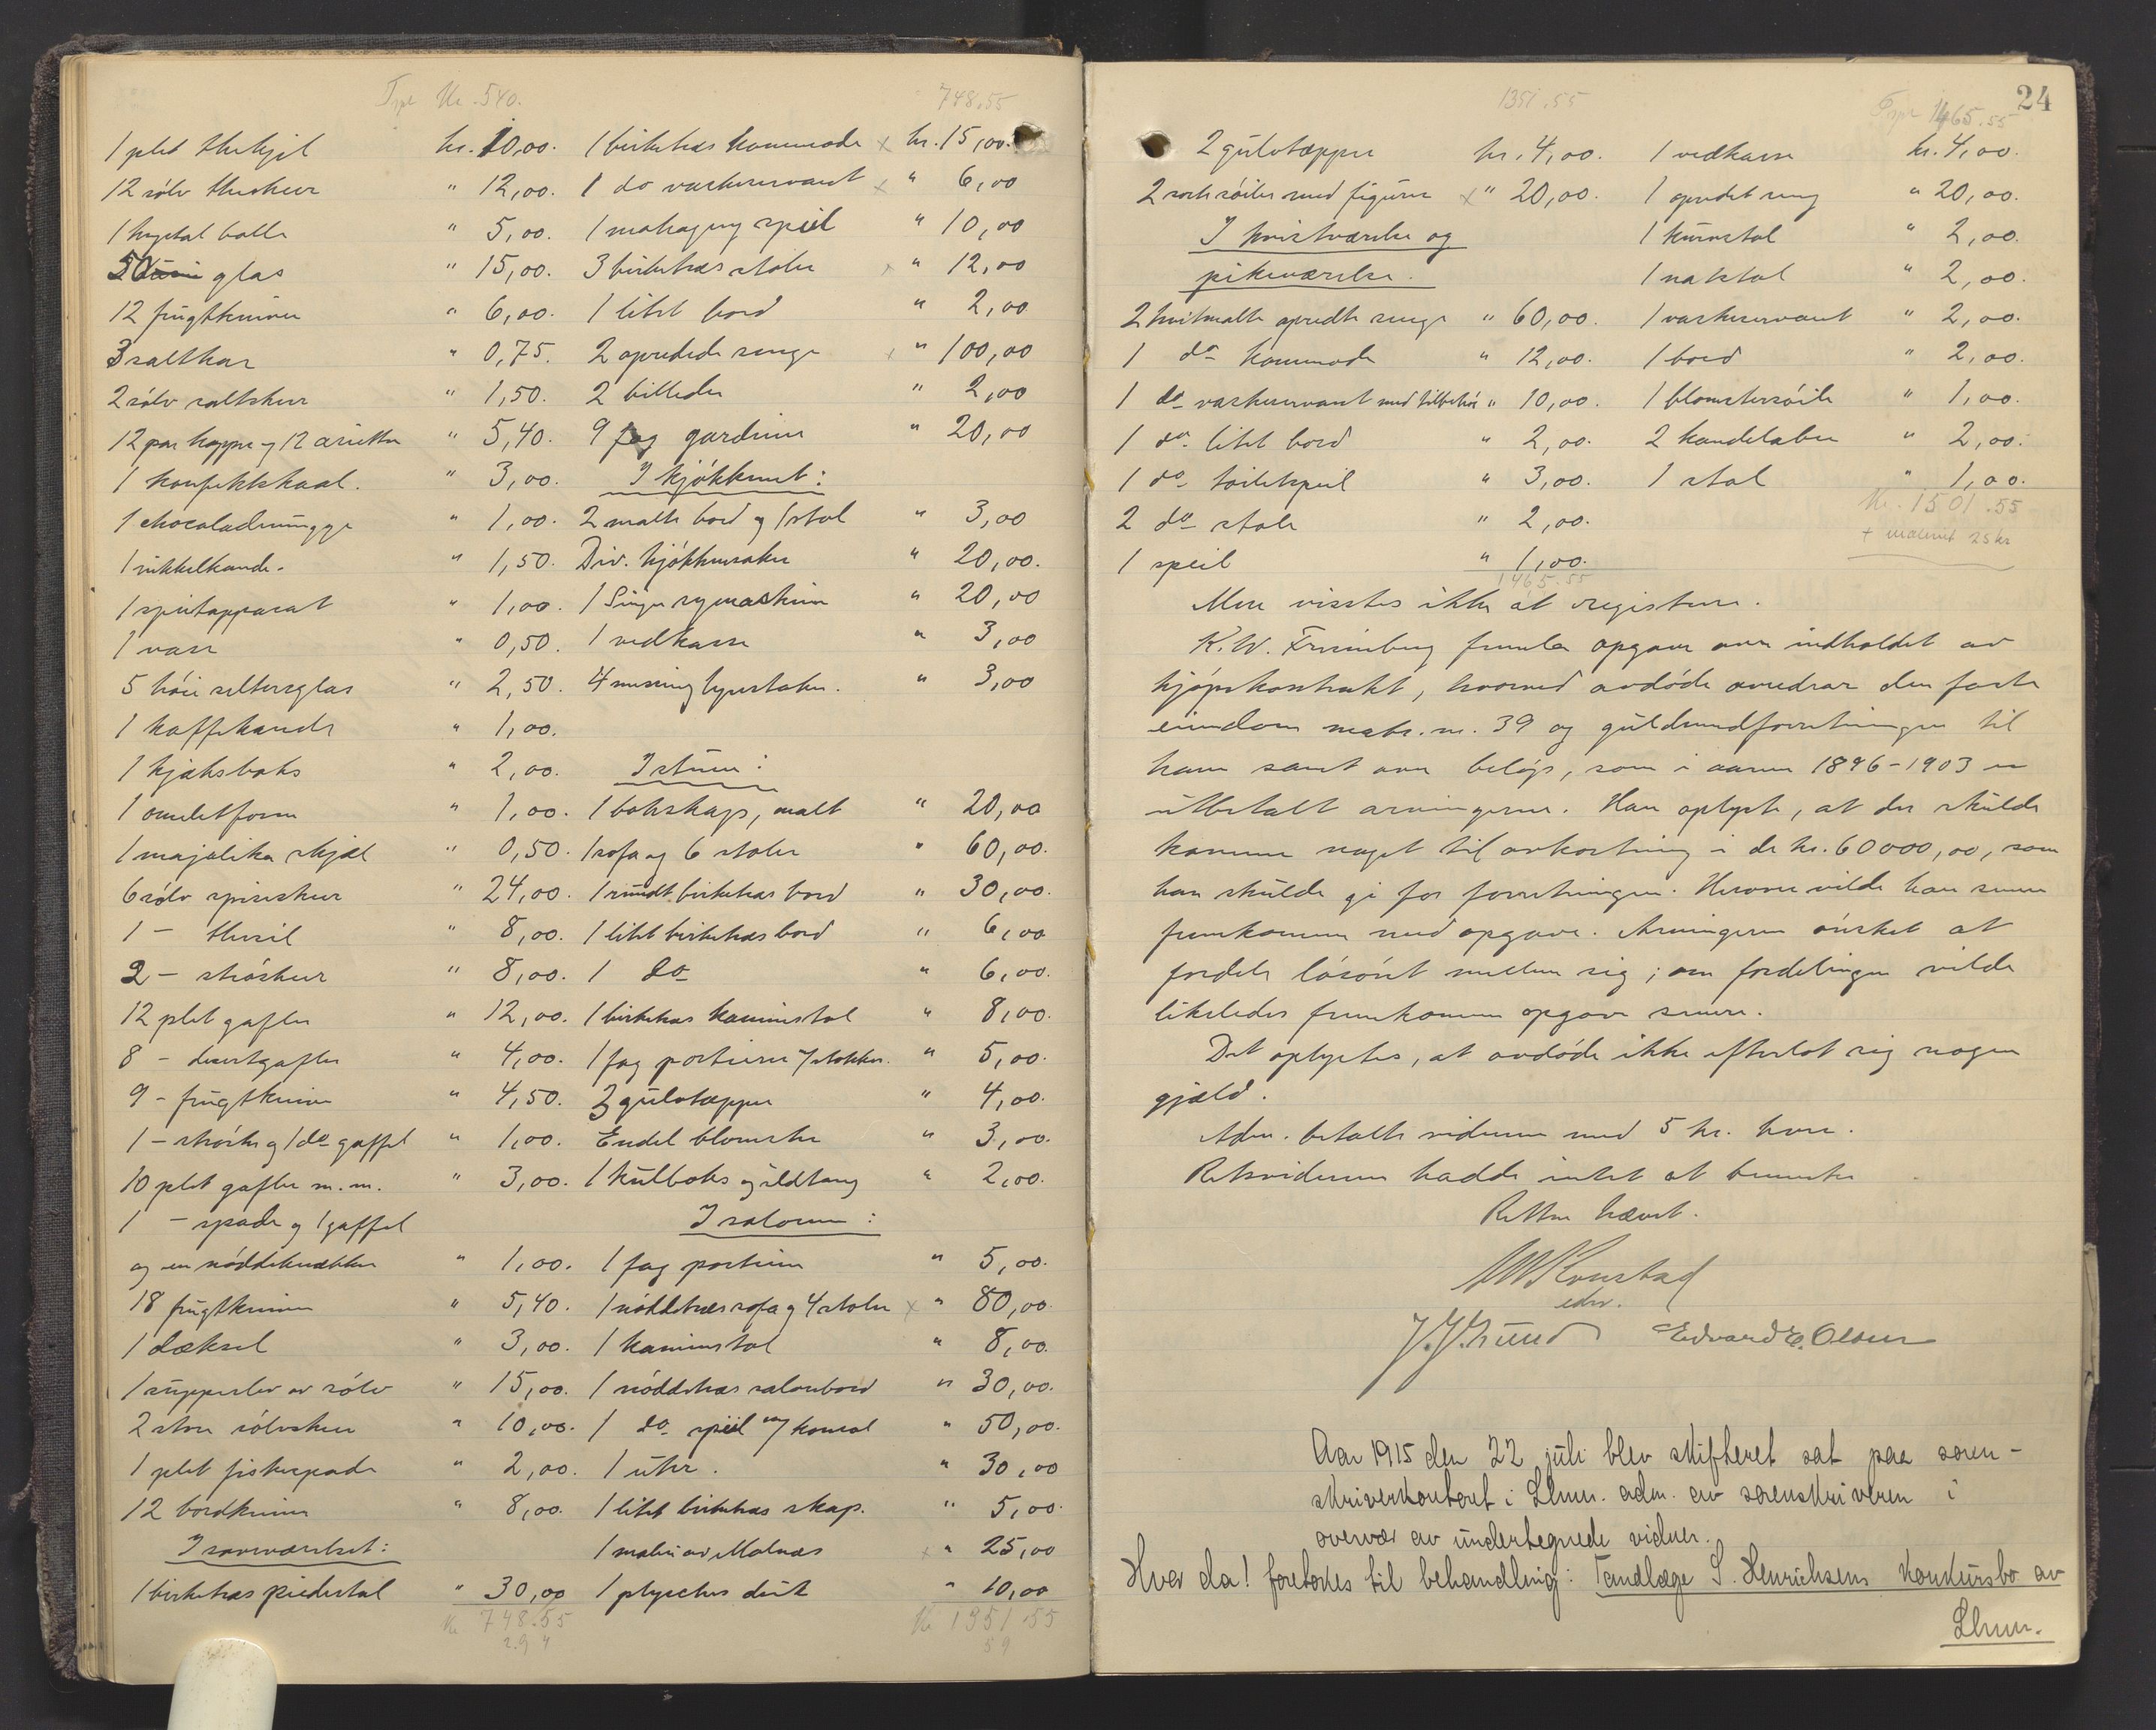 Kr. 540.
1 plet thekjel kr. 10,00.
12 sölv theskeer " 12,00.
1 krystal bolle " 5,00.
50 glas " 15,00.
12 frugtkniver " 6,00.
3 saltkar " 0,75.
2 sölv saltskeer " 1,50.
12 par kopper og 12 asietter " 5,40.
1 konfektskaal. " 3,00.
1 chocolademugge " 1,00.
1 nikkelkande. " 1,50.
1 spritapparat " 1,00.
1 vase " 0,50.
5 höie seltersglas " 2,50.
1 kaffekande " 1,00.
1 kjeksboks " 2,00.
1 omeletform " 1,00.
1 majolika skjæl " 0,50.
6 sölv spiseskeer " 24,00.
1 - thesil " 8,00.
2 - ströskeer " 8,00.
12 plet gafler " 12,00.
8 - dessertgafler " 4,00.
9 - frugtkniver " 4,50.
1 - ströske og 1 do gaffel " 1,00.
10 plet gafler m.m. " 3,00.
1 - spade og 1 gaffel
og en nöddeknækker " 1,00.
18 frugtkniver " 5,40.
1 dæksel " 3,00.
1 suppeslev av sölv " 15,00.
2 store sölvskeer " 10,00.
1 plet fiskespade " 2,00.
12 bordkniver " 8,00.
I soveværelset:
1 birketræs piedestal " 30,00
Kr 748.55
748.55
1 birketræs kommode x kr. 15,00.
1 do vaskeservant x " 6,00
1 mahogny speil " 10,00
3 birketræs stoler x " 12,00
1 litet bord " 2,00
2 opredede senge x " 100,00
2 billeder " 2,00
9 fag gardiner " 20,00
I kjökkenet:
2 malte bord og 1 stol " 3,00
Div. kjökkensaker " 20,00.
1 Singer symaskin " 20,00
1 vedkasse " 3,00
4 messing lysestaker. " 3,00
I stuen:
1 bokskap, malt " 20,00
1 sofa og 6 stoler " 60,00.
1 rundt birketræs bord " 30,00.
1 litet birketræs bord " 6,00
1 do " 6,00.
1 birketræs kaminstol " 8,00.
1 fag portierer m/stokker. " 5,00.
3 gulvtæpper " 4,00.
Endel blomster " 3,00.
1 kulboks og ildtang " 2,00.
I salonen:
1 fag portierer " 5,00.
1 nöddetræs sofa og 4 stoler x " 80,00.
1 kaminstol " 8,00.
1 nöddetræs salonbord " 30,00.
1 do speil m/ konsol " 50,00.
1 uhr. " 30,00
1 litet birketræs skap. " 5,00.
1 maleri av Malnæs x " 25,00
1 plysches duk " 10,00
Kr 1351.55
24
1351.55
2 gulvtæpper kr. 4,00.
2 sorte söiler med figurer x " 20,00.
I kvistværelse og
pikeværelse.
2 hvitmalte opredte senge " 60,00.
1 do kommode " 12,00.
1 do vaskeservant med tilbehör " 10,00.
1 do litet bord " 2,00.
1 do toiletspeil " 3,00.
2 do stole " 2,00.
1 speil " 1,00.
1465.55
1465.55
1 vedkasse kr. 4,00.
1 opredet seng " 20,00.
1 kurvstol " 2,00.
1 natstol " 2,00.
1 vaskeservant " 2,00.
1 bord " 2,00.
1 blomstersöile " 1,00.
2 kandelabre " 2,00.
1 stol " 1,00.
Kr. 1501.55
+ maleriet 25 kr
Mere visstes ikke at registrere.
K. W. fremla opgave over indholdet av
kjöpekontrakt, hvorved avdöde overdrar den faste
eiendom matr. nr. 39 og guldsmedforretningen til
ham samt over belöp, som i aarene 1896-1903 er
utbetalt arvingerne. Han oplyste, at der skulde
komme noget til avkortning i de kr. 60000,00, som
han skulde gi for forretningen. Herover vilde han senere
fremkomme med opgave. Arvingerne önsket at
fordele lösöret mellem sig; om fordelingen vilde
likeledes fremkomme opgave senere.
Det oplystes, at avdöde ikke efterlot sig nogen
gjæld.
Adm. betalte vidnerne med 5 kr. hver.
Retsvidnerne hadde intet at bemerke
Retten hævet.
edsv.
Edvard E. Olsen
Aar 1915 den 22 juli blev skifteret sat paa soren-
skriverkontoret i Lhmr. adm. av sorenskriveren i
overvær av undertegnede vidner.
Hvor da! foretokes til behandling: Tandlæge S. Henrichsens konkursbo av
Lhmr.